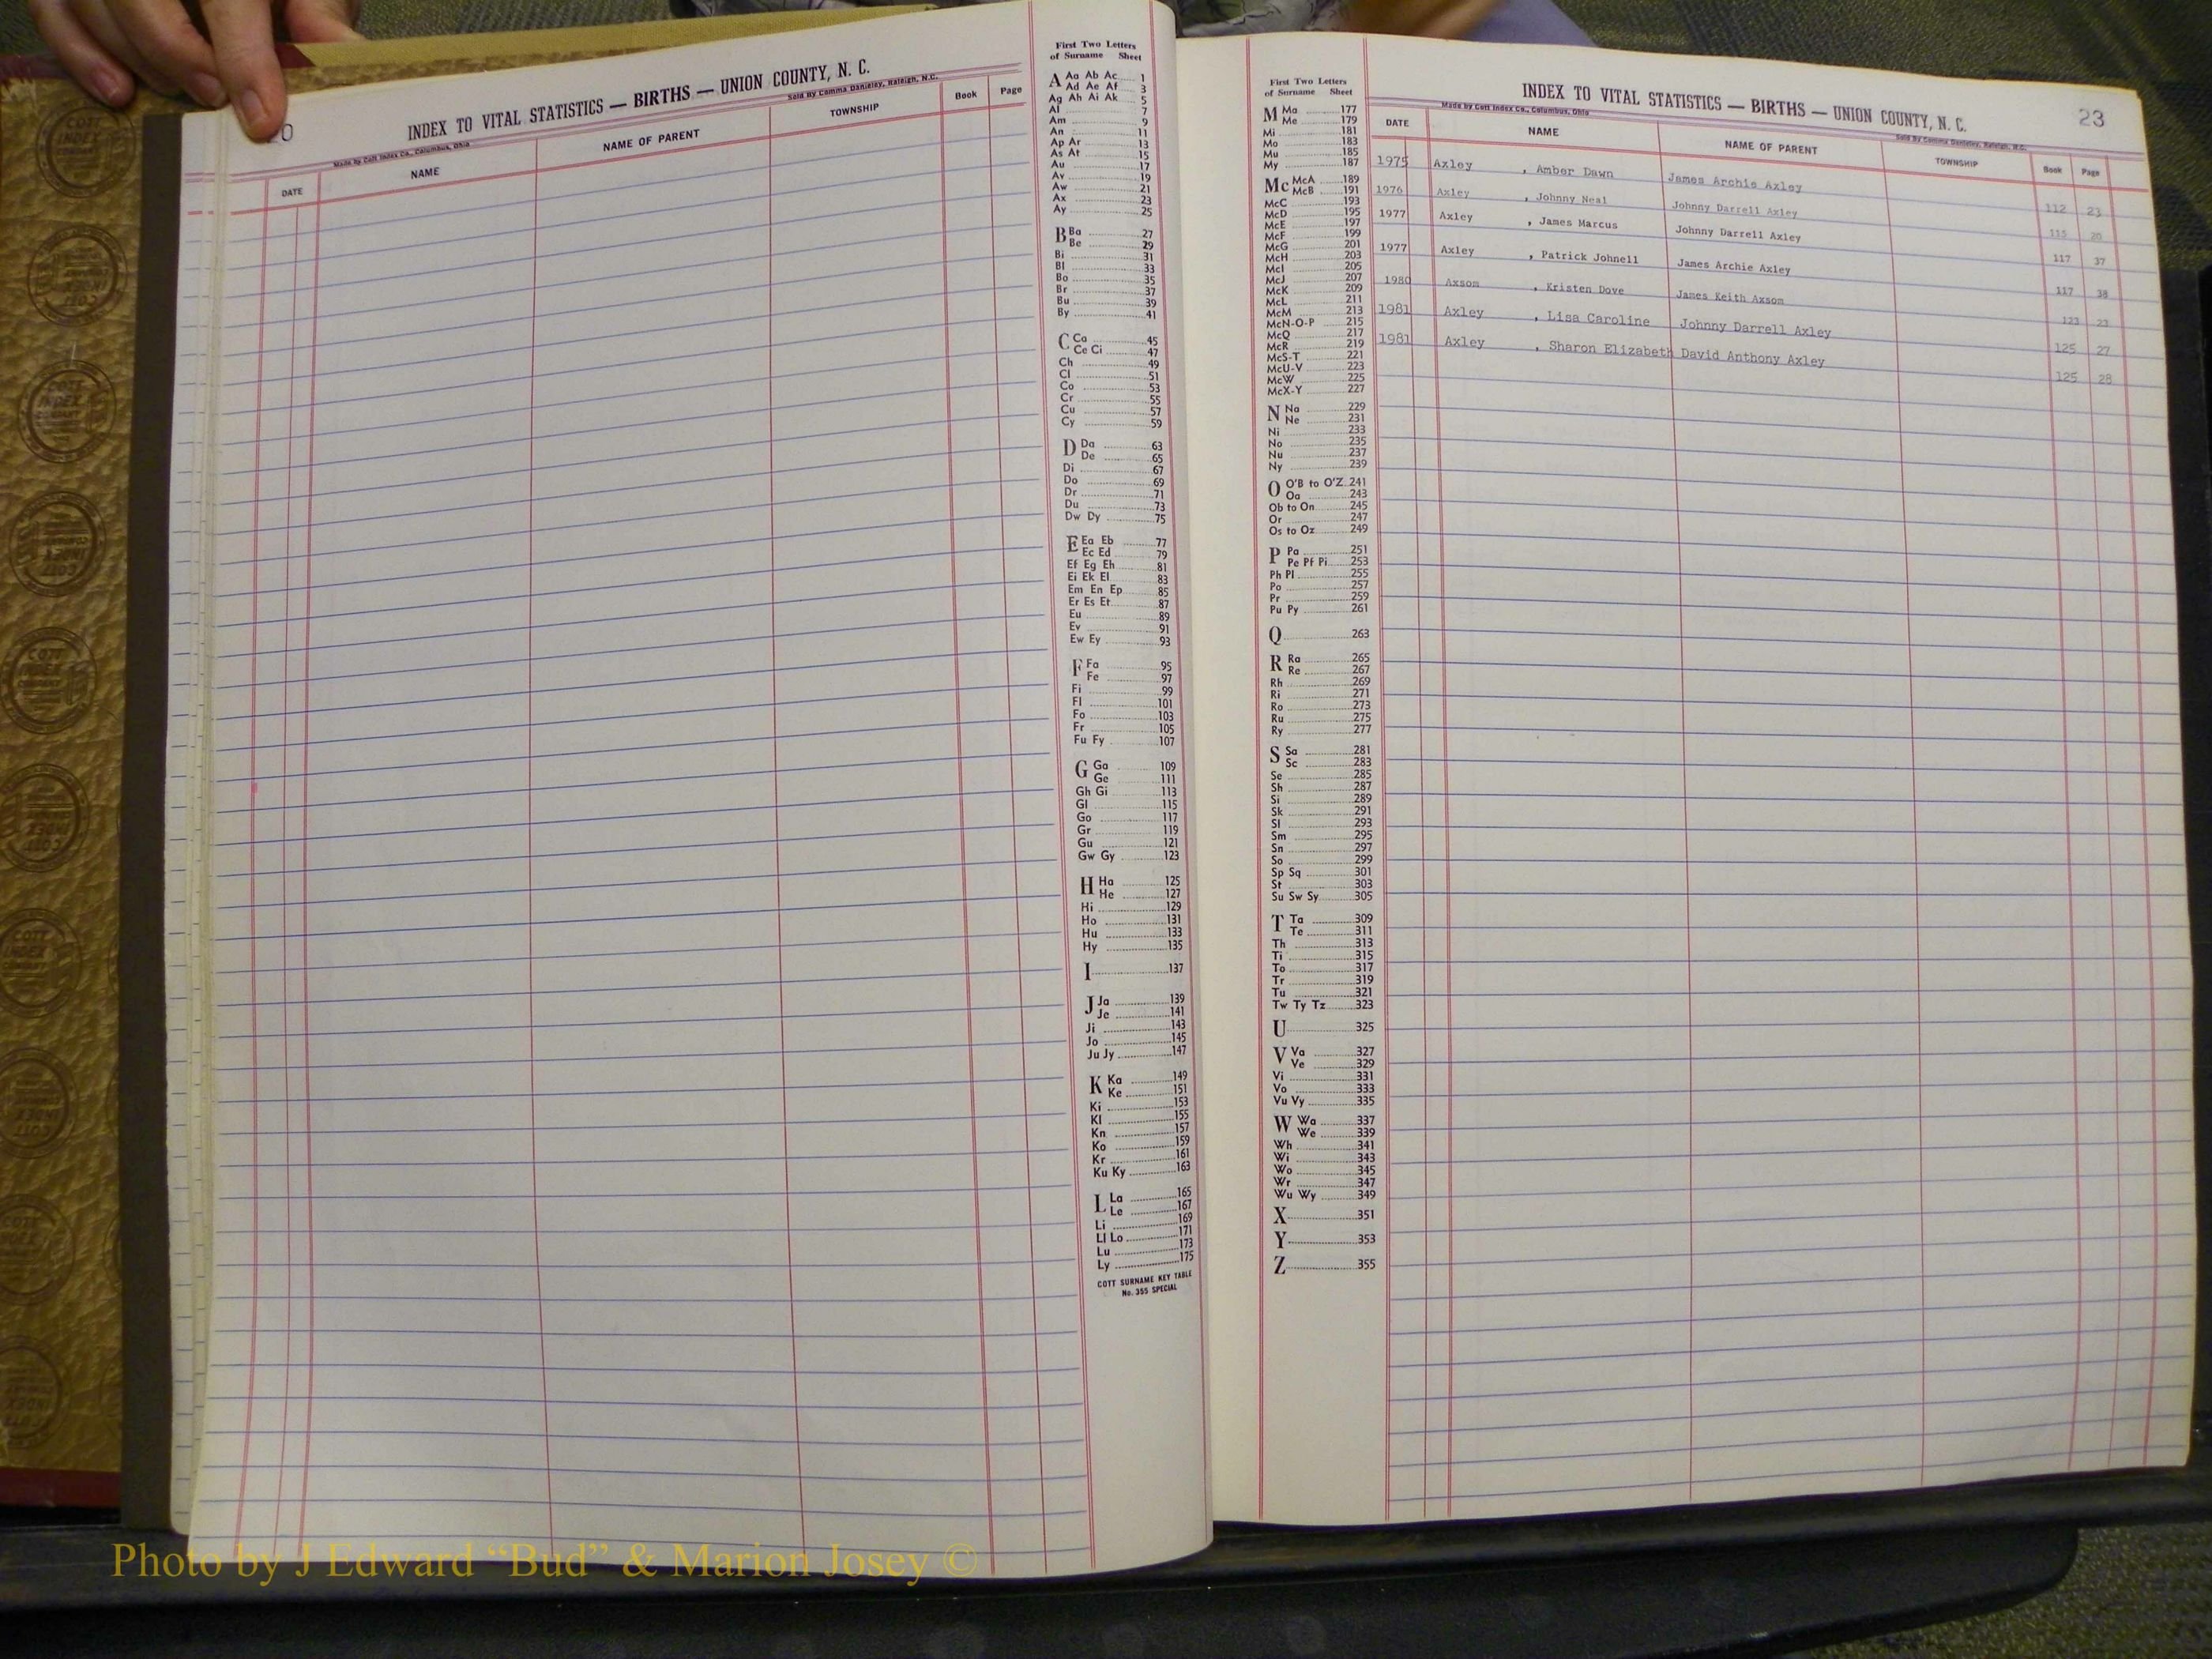 INDEX TO VITAL STATISTICS — BIRTHS — UNION COUNTY, N. C.
Made by Cott Index Co., Columbus, Ohio
Sold By Comma Danieley, Raleigh, N.C.
DATE NAME NAME OF PARENT TOWNSHIP Book Page
First Two Letters
of Surname Sheet
A Aa Ab Ac 1
Ad Ae Af 3
Ag Ah Ai Ak 5
Al 7
Am 9
An 11
Ap Ar 13
As At 15
Au 17
Av 19
Aw 21
Ax 23
Ay 25
B Ba 27
Be 29
Bi 31
Bl 33
Bo 35
Br 37
Bu 39
By 41
C Ca 45
Ce Ci 47
Ch 49
Cl 51
Co 53
Cr 55
Cu 57
Cy 59
D Da 63
De 65
Di 67
Do 69
Dr 71
Du 73
Dw Dy 75
E Ea Eb 77
Ec Ed 79
Ef Eg Eh 81
Ei Ek El 83
Em En Ep 85
Er Es Et 87
Eu 89
Ev 91
Ew Ey 93
F Fa 95
Fe 97
Fi 99
Fl 101
Fo 103
Fr 105
Fu Fy 107
G Ga 109
Ge 111
Gh Gi 113
Gl 115
Go 117
Gr 119
Gu 121
Gw Gy 123
H Ha 125
He 127
Hi 129
Ho 131
Hu 133
Hy 135
I 137
J Ja 139
Je 141
Ji 143
Jo 145
Ju Jy 147
K Ka 149
Ke 151
Ki 153
Kl 155
Kn 157
Ko 159
Kr 161
Ku Ky 163
L La 165
Le 167
Li 169
Ll Lo 171
Lu 173
Ly 175
COTT SURNAME KEY TABLE
No. 355 SPECIAL
First Two Letters
of Surname Sheet
M Ma 177
Me 179
Mi 181
Mo 183
Mu 185
My 187
Mc McA 189
McB 191
McC 193
McD 195
McE 197
McF 199
McG 201
McH 203
McI 205
McJ 207
McK 209
McL 211
McM 213
McN-O-P 215
McQ 217
McR 219
McS-T 221
McU-V 223
McW 225
McX-Y 227
N Na 229
Ne 231
Ni 233
No 235
Nu 237
Ny 239
O O'B to O'Z 241
Oa 243
Ob to On 245
Or 247
Os to Oz 249
P Pa 251
Pe Pf Pi 253
Ph Pl 255
Po 257
Pr 259
Pu Py 261
Q 263
R Ra 265
Re 267
Rh 269
Ri 271
Ro 273
Ru 275
Ry 277
S Sa 281
Sc 283
Se 285
Sh 287
Si 289
Sk 291
Sl 293
Sm 295
Sn 297
So 299
Sp Sq 301
St 303
Su Sw Sy 305
T Ta 309
Te 311
Th 313
Ti 315
To 317
Tr 319
Tu 321
Tw Ty Tz 323
U 325
V Va 327
Ve 329
Vi 331
Vo 333
Vu Vy 335
W Wa 337
We 339
Wh 341
Wi 343
Wo 345
Wr 347
Wu Wy 349
X 351
Y 353
Z 355
INDEX TO VITAL STATISTICS — BIRTHS — UNION COUNTY, N. C. 23
Made by Cott Index Co., Columbus, Ohio
Sold By Comma Danieley, Raleigh, N.C.
DATE NAME NAME OF PARENT TOWNSHIP Book Page
1975 Axley , Amber Dawn James Archie Axley 112 23
1976 Axley , Johnny Neal Johnny Darrell Axley 115 20
1977 Axley , James Marcus Johnny Darrell Axley 117 37
1977 Axley , Patrick Johnell James Archie Axley 117 38
1980 Axsom , Kristen Dove James Keith Axsom 123 23
1981 Axley , Lisa Caroline Johnny Darrell Axley 125 27
1981 Axley , Sharon Elizabeth David Anthony Axley 125 28
Photo by J Edward “Bud” & Marion Josey ©